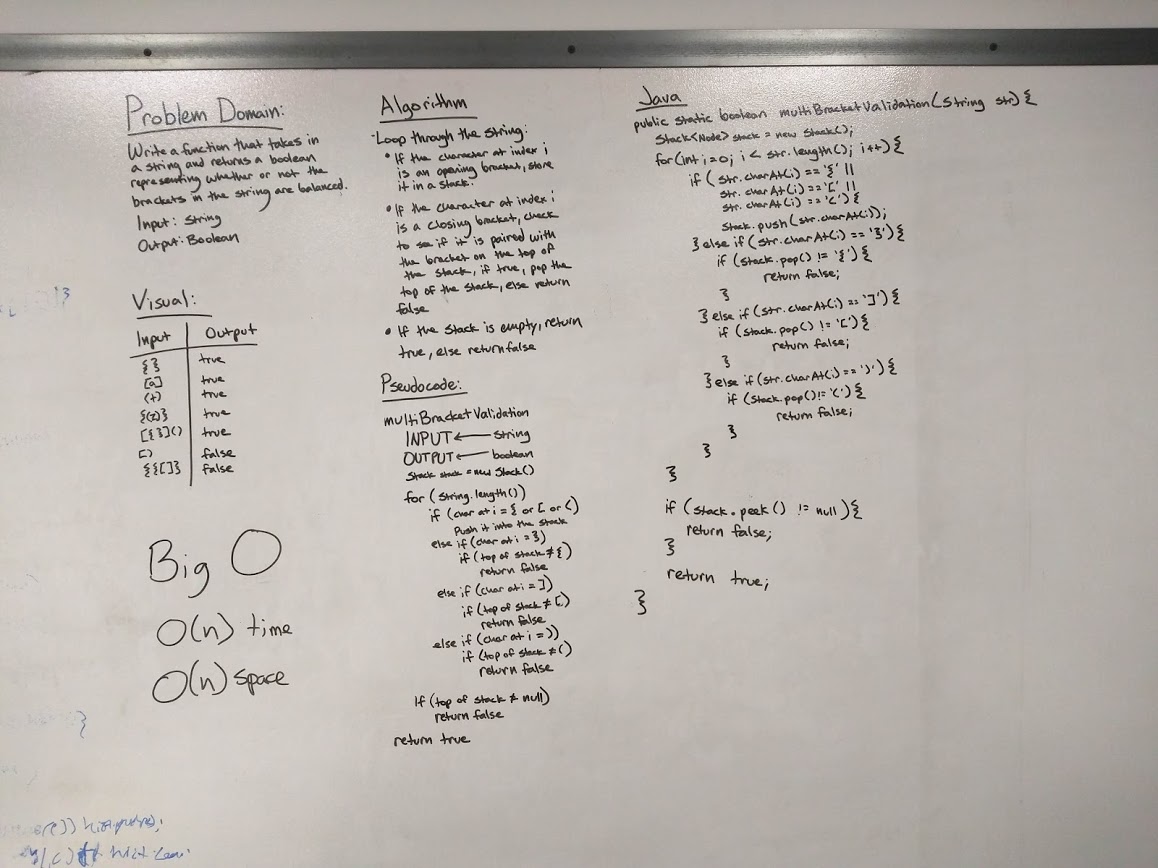 Problem Domain:
Write a function that takes in
a string and returns a boolean
representing whether or not the
brackets in the string are balanced.
Input: String
Output: Boolean
Visual:
Input Output
{ } true
[a] true
(+) true
{(z)} true
[{}]() true
[) false
{{[]} false
Big O
O(n) time
O(n) space
Algorithm
-Loop through the string:
• If the character at index i
is an opening bracket, store
it in a stack.
• If the character at index i
is a closing bracket, check
to see if it is paired with
the bracket on the top of
the stack, if true, pop the
top of the stack, else return
false
• If the stack is empty, return
true, else return false
Pseudocode:
multiBracketValidation
INPUT ← string
OUTPUT ← boolean
Stack stack = new Stack()
for (string.length())
if (char at i = { or [ or ()
Push it into the stack
else if (char at i = })
if (top of stack ≠ {)
return false
else if (char at i = ])
if (top of stack ≠ [)
return false
else if (char at i = ))
if (top of stack ≠ ()
return false
if (top of stack ≠ null)
return false
return true
Java
public static boolean multiBracketValidation(String str){
Stack<Node> stack = new Stack();
for(int i=0; i < str.length(); i++){
if ( str.charAt(i) == '{' ||
str.charAt(i) == '[' ||
str.charAt(i) == '('){
Stack.push(str.charAt(i));
} else if (str.charAt(i) == '}'){
if (stack.pop() != '{'){
return false;
}
} else if (str.charAt(i) == ']'){
if (stack.pop() != '['){
return false;
}
} else if (str.charAt(i) == ')'){
if (stack.pop() != '('){
return false;
}
}
}
if (stack.peek() != null){
return false;
}
return true;
}